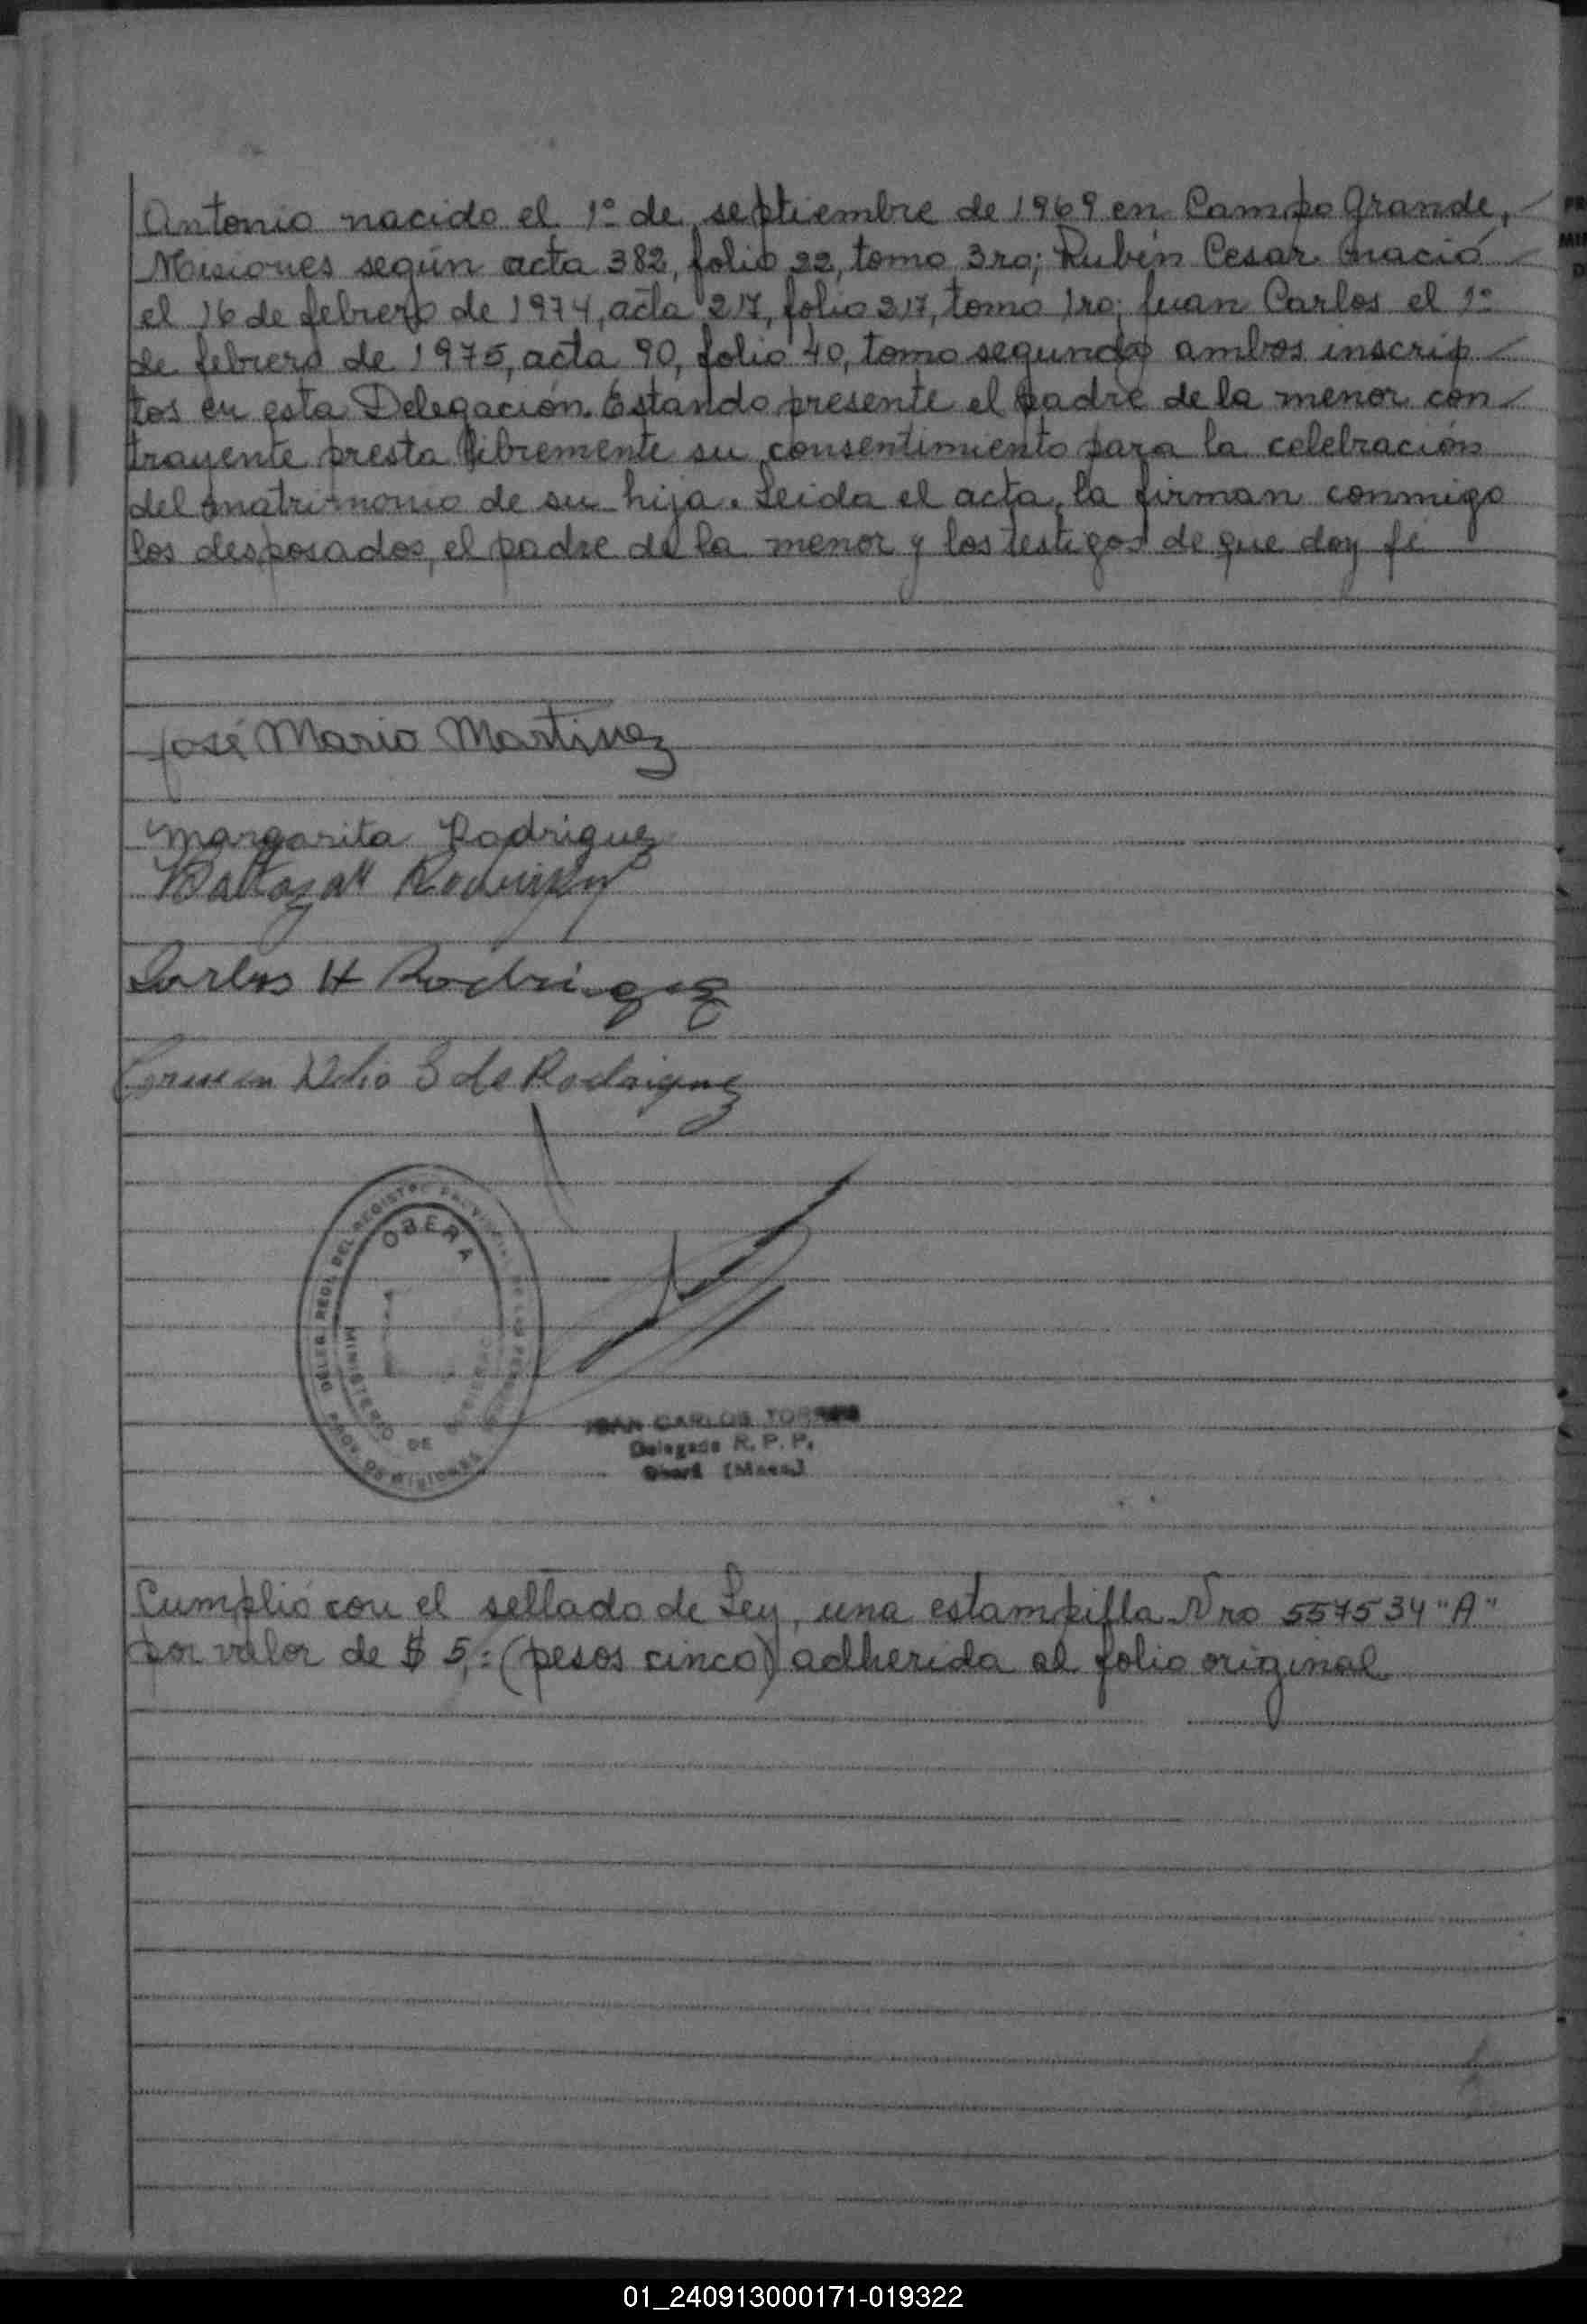 Antonio nacido el 1º de septiembre de 1969 en Campo Grande,
Misiones según acta 382, folio 22, tomo 3ro; Rubén Cesar nació
el 16 de febrero de 1974, acta 217, folio 217, tomo 1ro; Juan Carlos el 1º
de febrero de 1975, acta 90, folio 40, tomo segundo ambos inscrip
tos en esta Delegación. Estando presente el padre de la menor con
trayente presta libremente su consentimiento para la celebración
del matrimonio de su hija. Leida el acta, la firman conmigo
los desposados, el padre de la menor y los testigos de que doy fé
José Mario Martinez
Margarita Rodriguez
Carlos H Rodriguez
S de Rodriguez
DELEG. REGL. DEL REGISTRO PROVINCIAL DE LAS PERSONAS
OBERA
MINISTERIO DE GOBIERNO
PROV. DE MISIONES
JUAN CARLOS TORRES
Delegado R. P. P.
Oberá (Mnes.)
Cumplió con el sellado de Ley, una estampilla Nro 557534 "A"
por valor de $ 5,= (pesos cinco) adherida al folio original
01_240913000171-019322